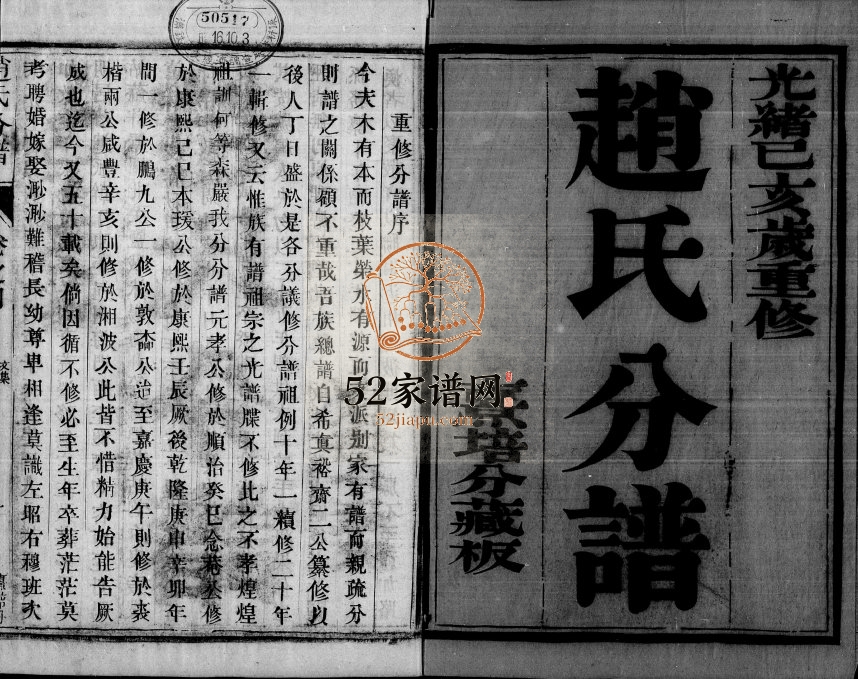 光緒己亥歲重修
趙氏分譜
培分藏板
重修分譜序
今夫木有本而枝葉榮水有源而派別家有譜而親疏分
則譜之關係顧不重哉吾族總譜自希真裕齋二公纂修以
後人丁日盛於是各分議修分譜祖例十年一續修二十年
一斬修又云惟族有譜祖宗之光譜牒不修比之不孝煌煌
祖訓何等森嚴我分分譜元孝公修於順治癸巳念菴公修
於康熙己巳本瑗公修於康熙壬辰厥後乾隆庚申辛卯年
間一修於鵬九公一修於敦齋公迨至嘉慶庚午則修於裘
楷兩公咸豐辛亥則修於湘波公此皆不惜精力始能告厥
成也迄今又五十載矣倘因循不修必至生年卒葬茫茫莫
考聘婚嫁娶渺渺難稽長幼尊卑相逢莫識左昭右穆班次
趙氏分譜
文集
50517
16.10.3
52家谱网
52jiapu.com